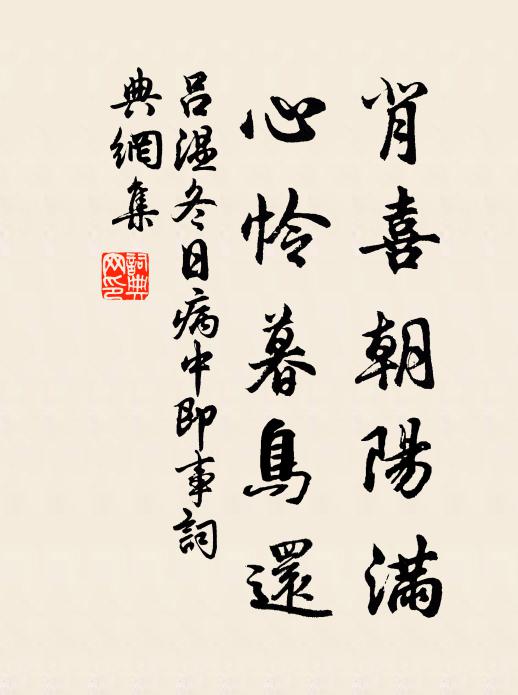 背喜朝陽滿
心怜暮鳥還
呂温冬日病中即事詞
典網集
詞典
网印